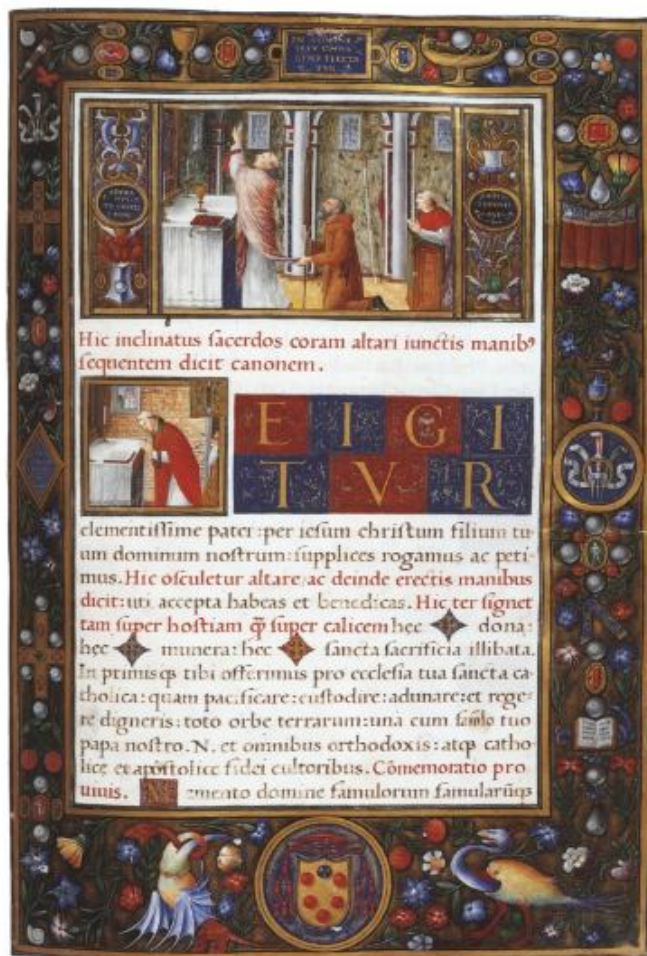 Hic inclinatus sacerdos coram altari iunctis manibꝰ
sequentem dicit canonem.
E I G I
T V R
clementissime pater: per iesum christum filium tu-
um dominum nostrum: supplices rogamus ac peti-
mus. Hic osculetur altare, ac deinde erectis manibus
dicit: uti accepta habeas et benedicas. Hic ter signet
tam super hostiam q̄ꝫ super calicem hec dona:
hec munera: hec sancta sacrificia illibata.
In primisqꝫ tibi offerimus pro ecclesia tua sancta ca-
tholica: quam pacificare: custodire: adunare: et rege-
re digneris: toto orbe terrarum: una cum famlo tuo
papa nostro. N. et omnibus orthodoxis: atqꝫ catho-
lice et apostolice fidei cultoribus. Cōmemoratio pro
uiuis. M emento domine famulorum famularūqꝫ